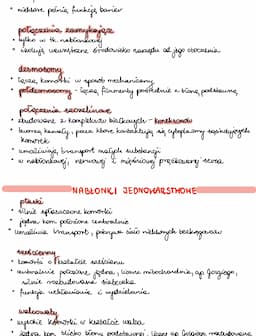 • niektóre pełnią funkcję barier
połączenia zamykające
• tylko w tk. nabłonkowej
• izolują wewnętrzne środowisko narządu od jego otoczenia
desmosomy
• łączą komórki w sposób mechaniczny
• półdesmosomy - łączą filamenty pośrednie z błoną podstawną
połączenia szczelinowe
• zbudowane z kompleksów białkowych - koneksonów
• tworzą kanały, przez które kontaktują się cytoplazmy sąsiadujących
komórek
• umożliwiają transport małych substancji
• w nabłonkowej, nerwowej i mięśniowej
NABŁONKI JEDNOWARSTWOWE
płaski
• silnie spłaszczone komórki
• jądra kom. położone centralnie
• umożliwia transport, pokrywa ciało niektórych bezkręgowców
sześcienny
• komórki o kształcie sześcianu
• centralnie położone jądra, liczne mitochondria, ap. Golgiego,
silnie rozbudowane siateczka
• funkcja wchłaniania i wydzielania
walcowaty
• wysokie komórki w kształcie walca
• jądra kom. blisko błony podstawnej, liczne ap. Golgiego